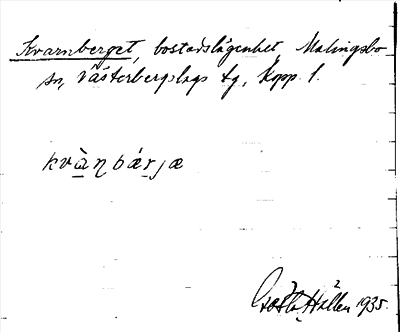 Kvarnberget, bostadslägenhet, Malingsbo
sn, Västerbergslags tg, Kopp. l.
kvà̱ṇbá̱rjæ
Gösta Hallén 1935.